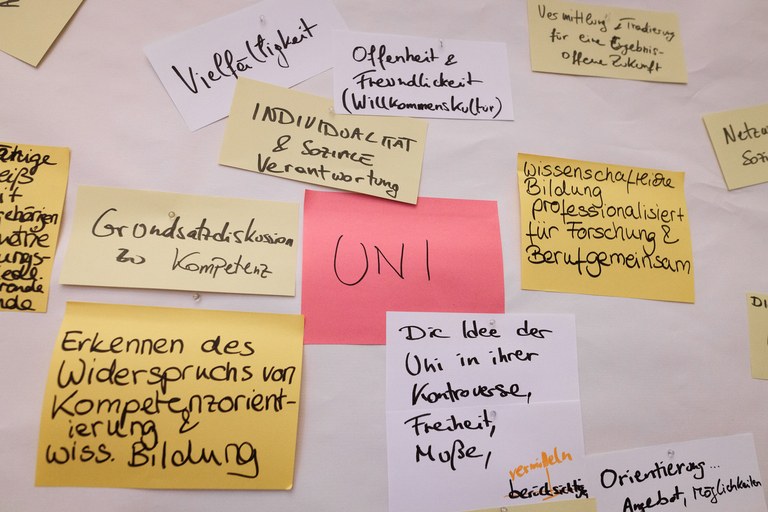 Vielfältigkeit
Offenheit &
Freundlickeit
(Willkommenskultur)
Vermittlung & Tradierung
für eine Ergebnis-
offene Zukunft
INDIVIDUALITÄT
& SOZIALE
Verantwortung
Netzw
Sozi
ähige
eiß
it
ungs-
rande
nde
Grundsatzdiskussion
zu Kompetenz
UNI
wissenschaftliche
Bildung
professionalisiert
für Forschung &
Berufgemeinsam
DI
Erkennen des
Widerspruchs von
Kompetenzorient-
ierung &
wiss. Bildung
Die Idee der
Uni in ihrer
Kontroverse,
Freiheit,
Muße,
vermitteln
berücksichtig
Orientierung...
Angebot, Möglichkeiten